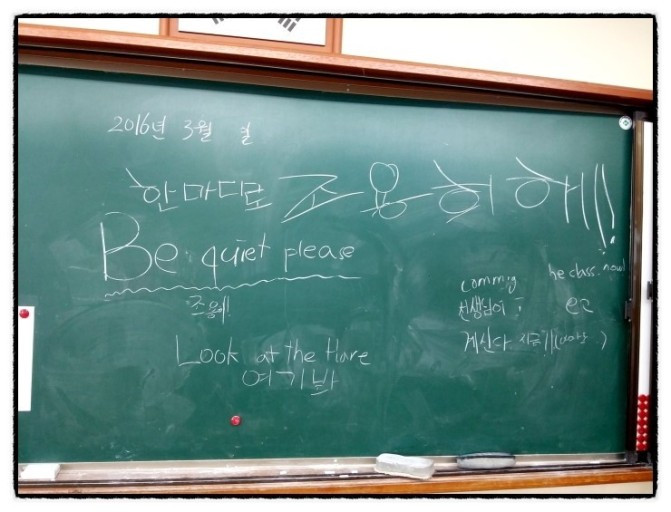 2016년 3월 일
한마디로 조용히 해!!
Be quiet please
조용히!
Look at the Hare
여기봐
commig he class. now!
선생님이
계신다